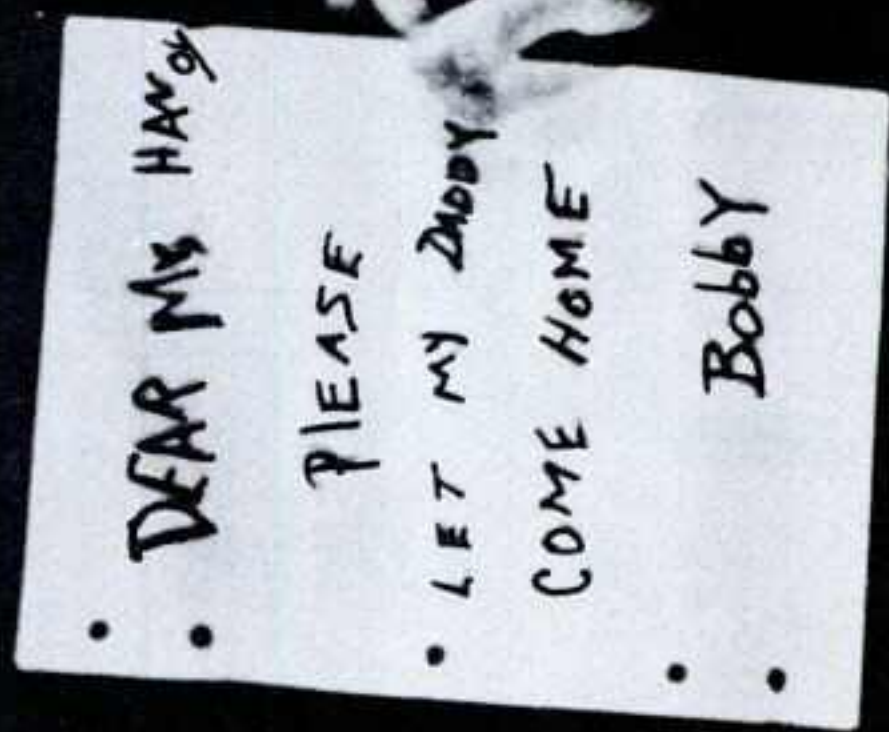 DEAR Mr HANOI
PlEASE
LET MY DADDY
COME HOME
BobbY